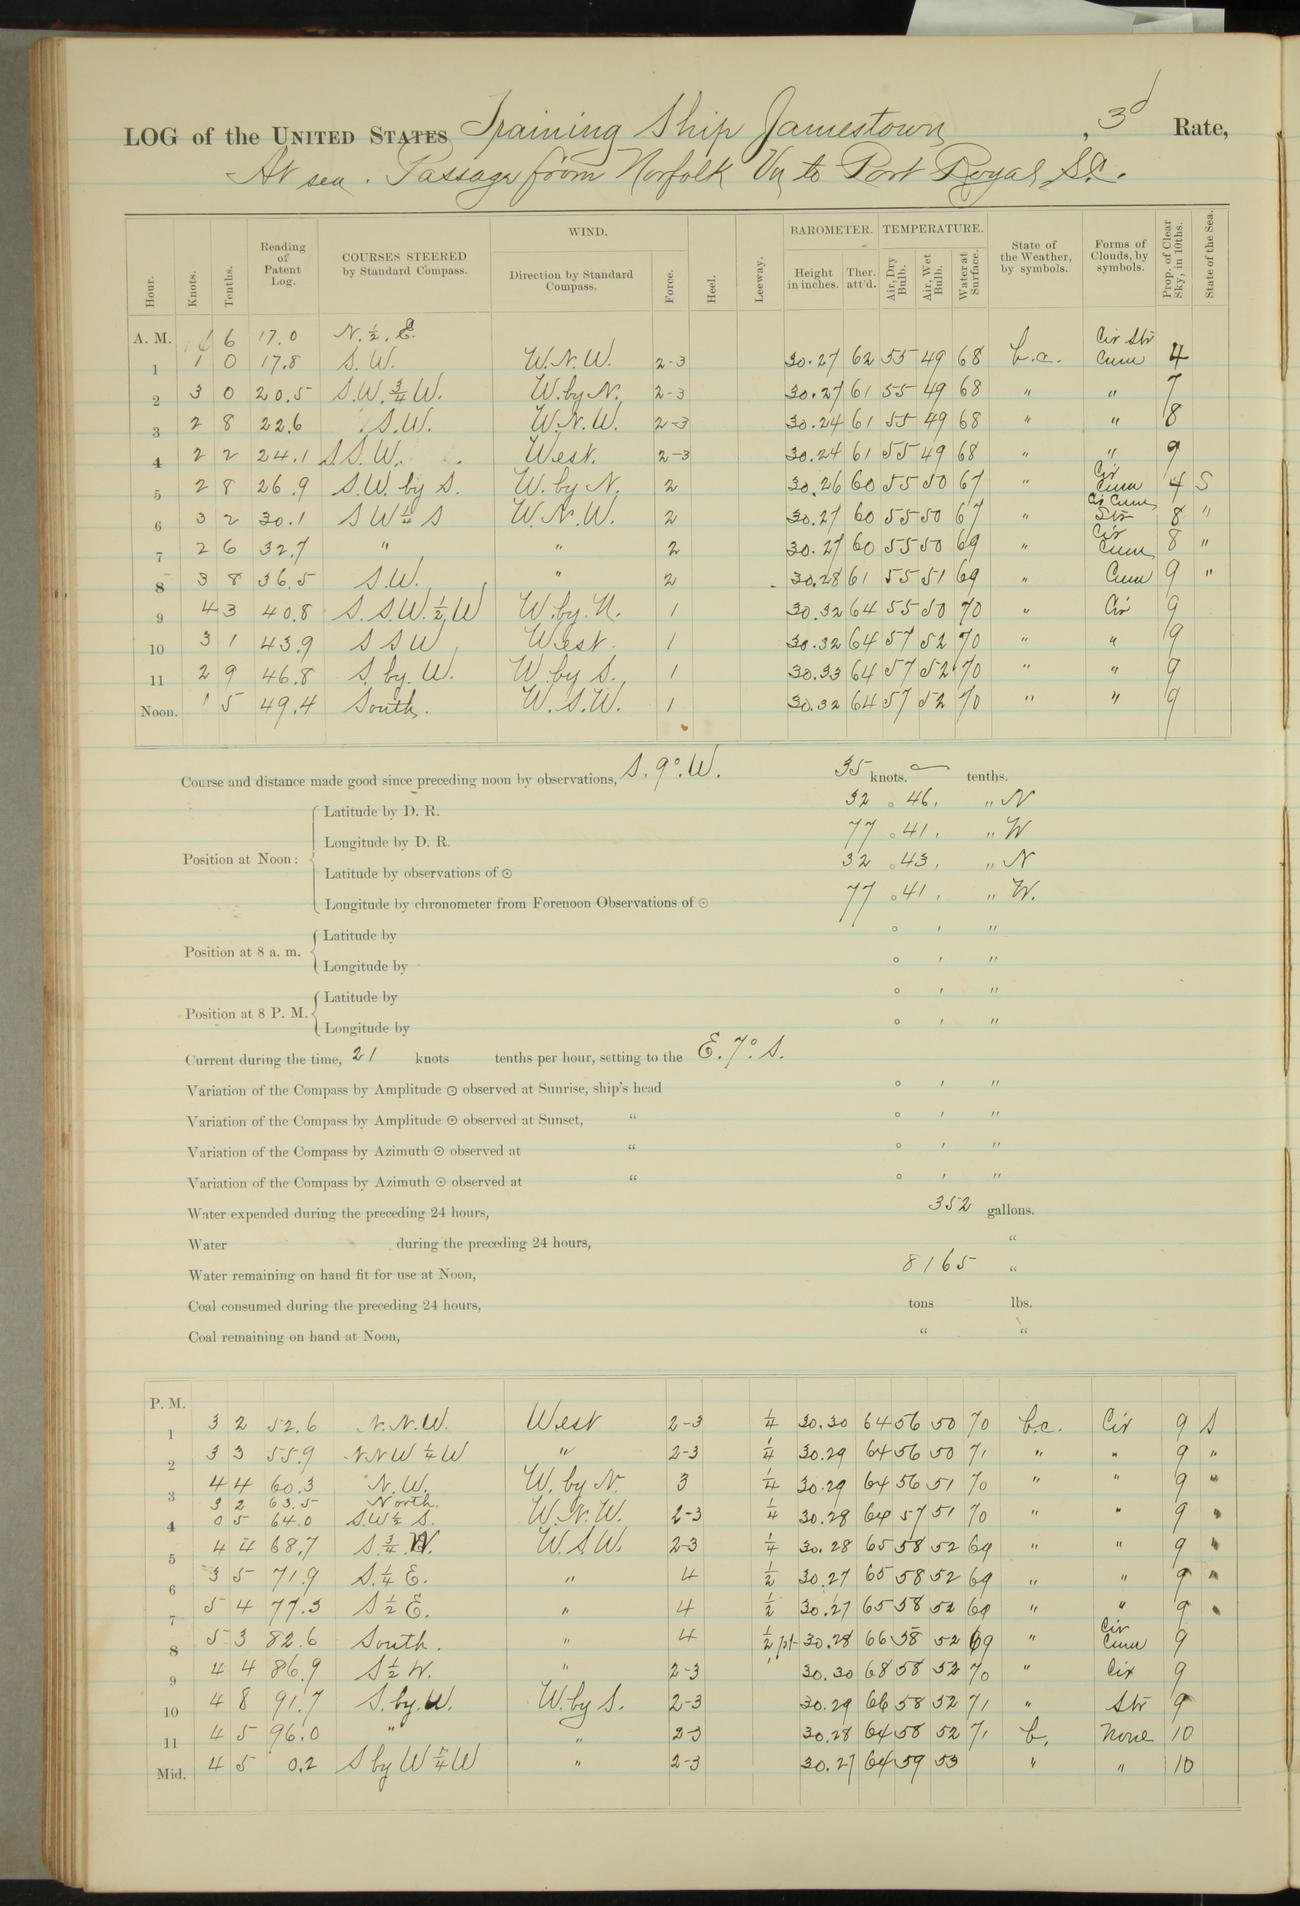 LOG of the UNITED STATES Training Ship Jamestown, 3d Rate,
At sea. Passage from Norfolk Va to Port Royal S.C.
Hour. Knots. Tenths. Reading of Patent Log. COURSES STEERED by Standard Compass. WIND. Direction by Standard Compass. Force. Heel. Leeway. BAROMETER. Height in inches. Ther. att'd. TEMPERATURE. Air, Dry Bulb. Air, Wet Bulb. Water at Surface. State of the Weather, by symbols. Forms of Clouds, by symbols. Prop. of Clear Sky, in 10ths. State of the Sea.
A. M. 6 17.0 N. ½. E.
1 1 0 17.8 S.W. W.N.W. 2-3 30.27 62 55 49 68 b.c. Cir Str Cum 4
2 3 0 20.5 S.W. ¾ W. W. by N. 2-3 30.27 61 55 49 68 " " 7
3 2 8 22.6 S.W. W.N.W. 2-3 30.24 61 55 49 68 " " 8
4 2 2 24.1 S.S.W. West. 2-3 30.24 61 55 49 68 " " 9
5 2 8 26.9 S.W. by S. W. by N. 2 30.26 60 55 50 67 " Cir Cum 4 S
6 3 2 30.1 S W ¼ S W.N.W. 2 30.27 60 55 50 67 " Cir Cum Str 8 "
7 2 6 32.7 " " 2 30.27 60 55 50 69 " Cir Cum 8 "
8 3 8 36.5 S.W. " 2 30.28 61 55 51 69 " Cum 9 "
9 4 3 40.8 S.S.W. ½ W W. by. N. 1 30.32 64 55 50 70 " Cir 9
10 3 1 43.9 S S W West. 1 30.32 64 57 52 70 " " 9
11 2 9 46.8 S. by. W. W. by S. 1 30.33 64 57 52 70 " " 9
Noon. 1 5 49.4 South. W.S.W. 1 30.32 64 57 52 70 " " 9
Course and distance made good since preceding noon by observations, S. 9°. W. 35 knots. tenths.
Position at Noon:
Latitude by D. R. 32 ° 46 ' " N
Longitude by D. R. 77 ° 41 ' " W
Latitude by observations of ☉ 32 ° 43 ' " N
Longitude by chronometer from Forenoon Observations of ☉ 77 ° 41 ' " W.
Position at 8 a. m.
Latitude by ° ' "
Longitude by ° ' "
Position at 8 P. M.
Latitude by ° ' "
Longitude by ° ' "
Current during the time, 21 knots tenths per hour, setting to the E. 7°. S.
Variation of the Compass by Amplitude ☉ observed at Sunrise, ship's head ° ' "
Variation of the Compass by Amplitude ☉ observed at Sunset, " ° ' "
Variation of the Compass by Azimuth ☉ observed at " ° ' "
Variation of the Compass by Azimuth ☉ observed at " ° ' "
Water expended during the preceding 24 hours, 352 gallons.
Water during the preceding 24 hours, "
Water remaining on hand fit for use at Noon, 8165 "
Coal consumed during the preceding 24 hours, tons lbs.
Coal remaining on hand at Noon, " "
P. M.
1 3 2 52.6 N.N.W. West 2-3 ¼ 30.30 64 56 50 70 b.c. Cir 9 S
2 3 3 55.9 N N W ¼ W " 2-3 ¼ 30.29 64 56 50 71 " " 9 "
3 4 4 60.3 N.W. W. by N. 3 ¼ 30.29 64 56 51 70 " " 9 "
3 2 63.5 North.
4 0 5 64.0 S.W ½ S. W.N.W. 2-3 ¼ 30.28 64 57 51 70 " " 9 "
5 4 4 68.7 S. ¾ W. W.S.W. 2-3 ¼ 30.28 65 58 52 69 " " 9 "
6 3 5 71.9 S. ¼ E. " 4 ½ 30.27 65 58 52 69 " " 9 "
7 5 4 77.3 S ½ E. " 4 ½ 30.27 65 58 52 69 " " 9 "
8 5 3 82.6 South. " 4 ½ pt 30.28 66 58 52 69 " Cir Cum 9
9 4 4 86.9 S ½ W. " 2-3 30.30 68 58 52 70 " Cir 9
10 4 8 91.7 S. by. W. W. by S. 2-3 30.29 66 58 52 71 " Str 9
11 4 5 96.0 " " 2-3 30.28 64 58 52 71 b. None 10
Mid. 4 5 0.2 S by W ¼ W " 2-3 30.27 64 59 53 " " 10